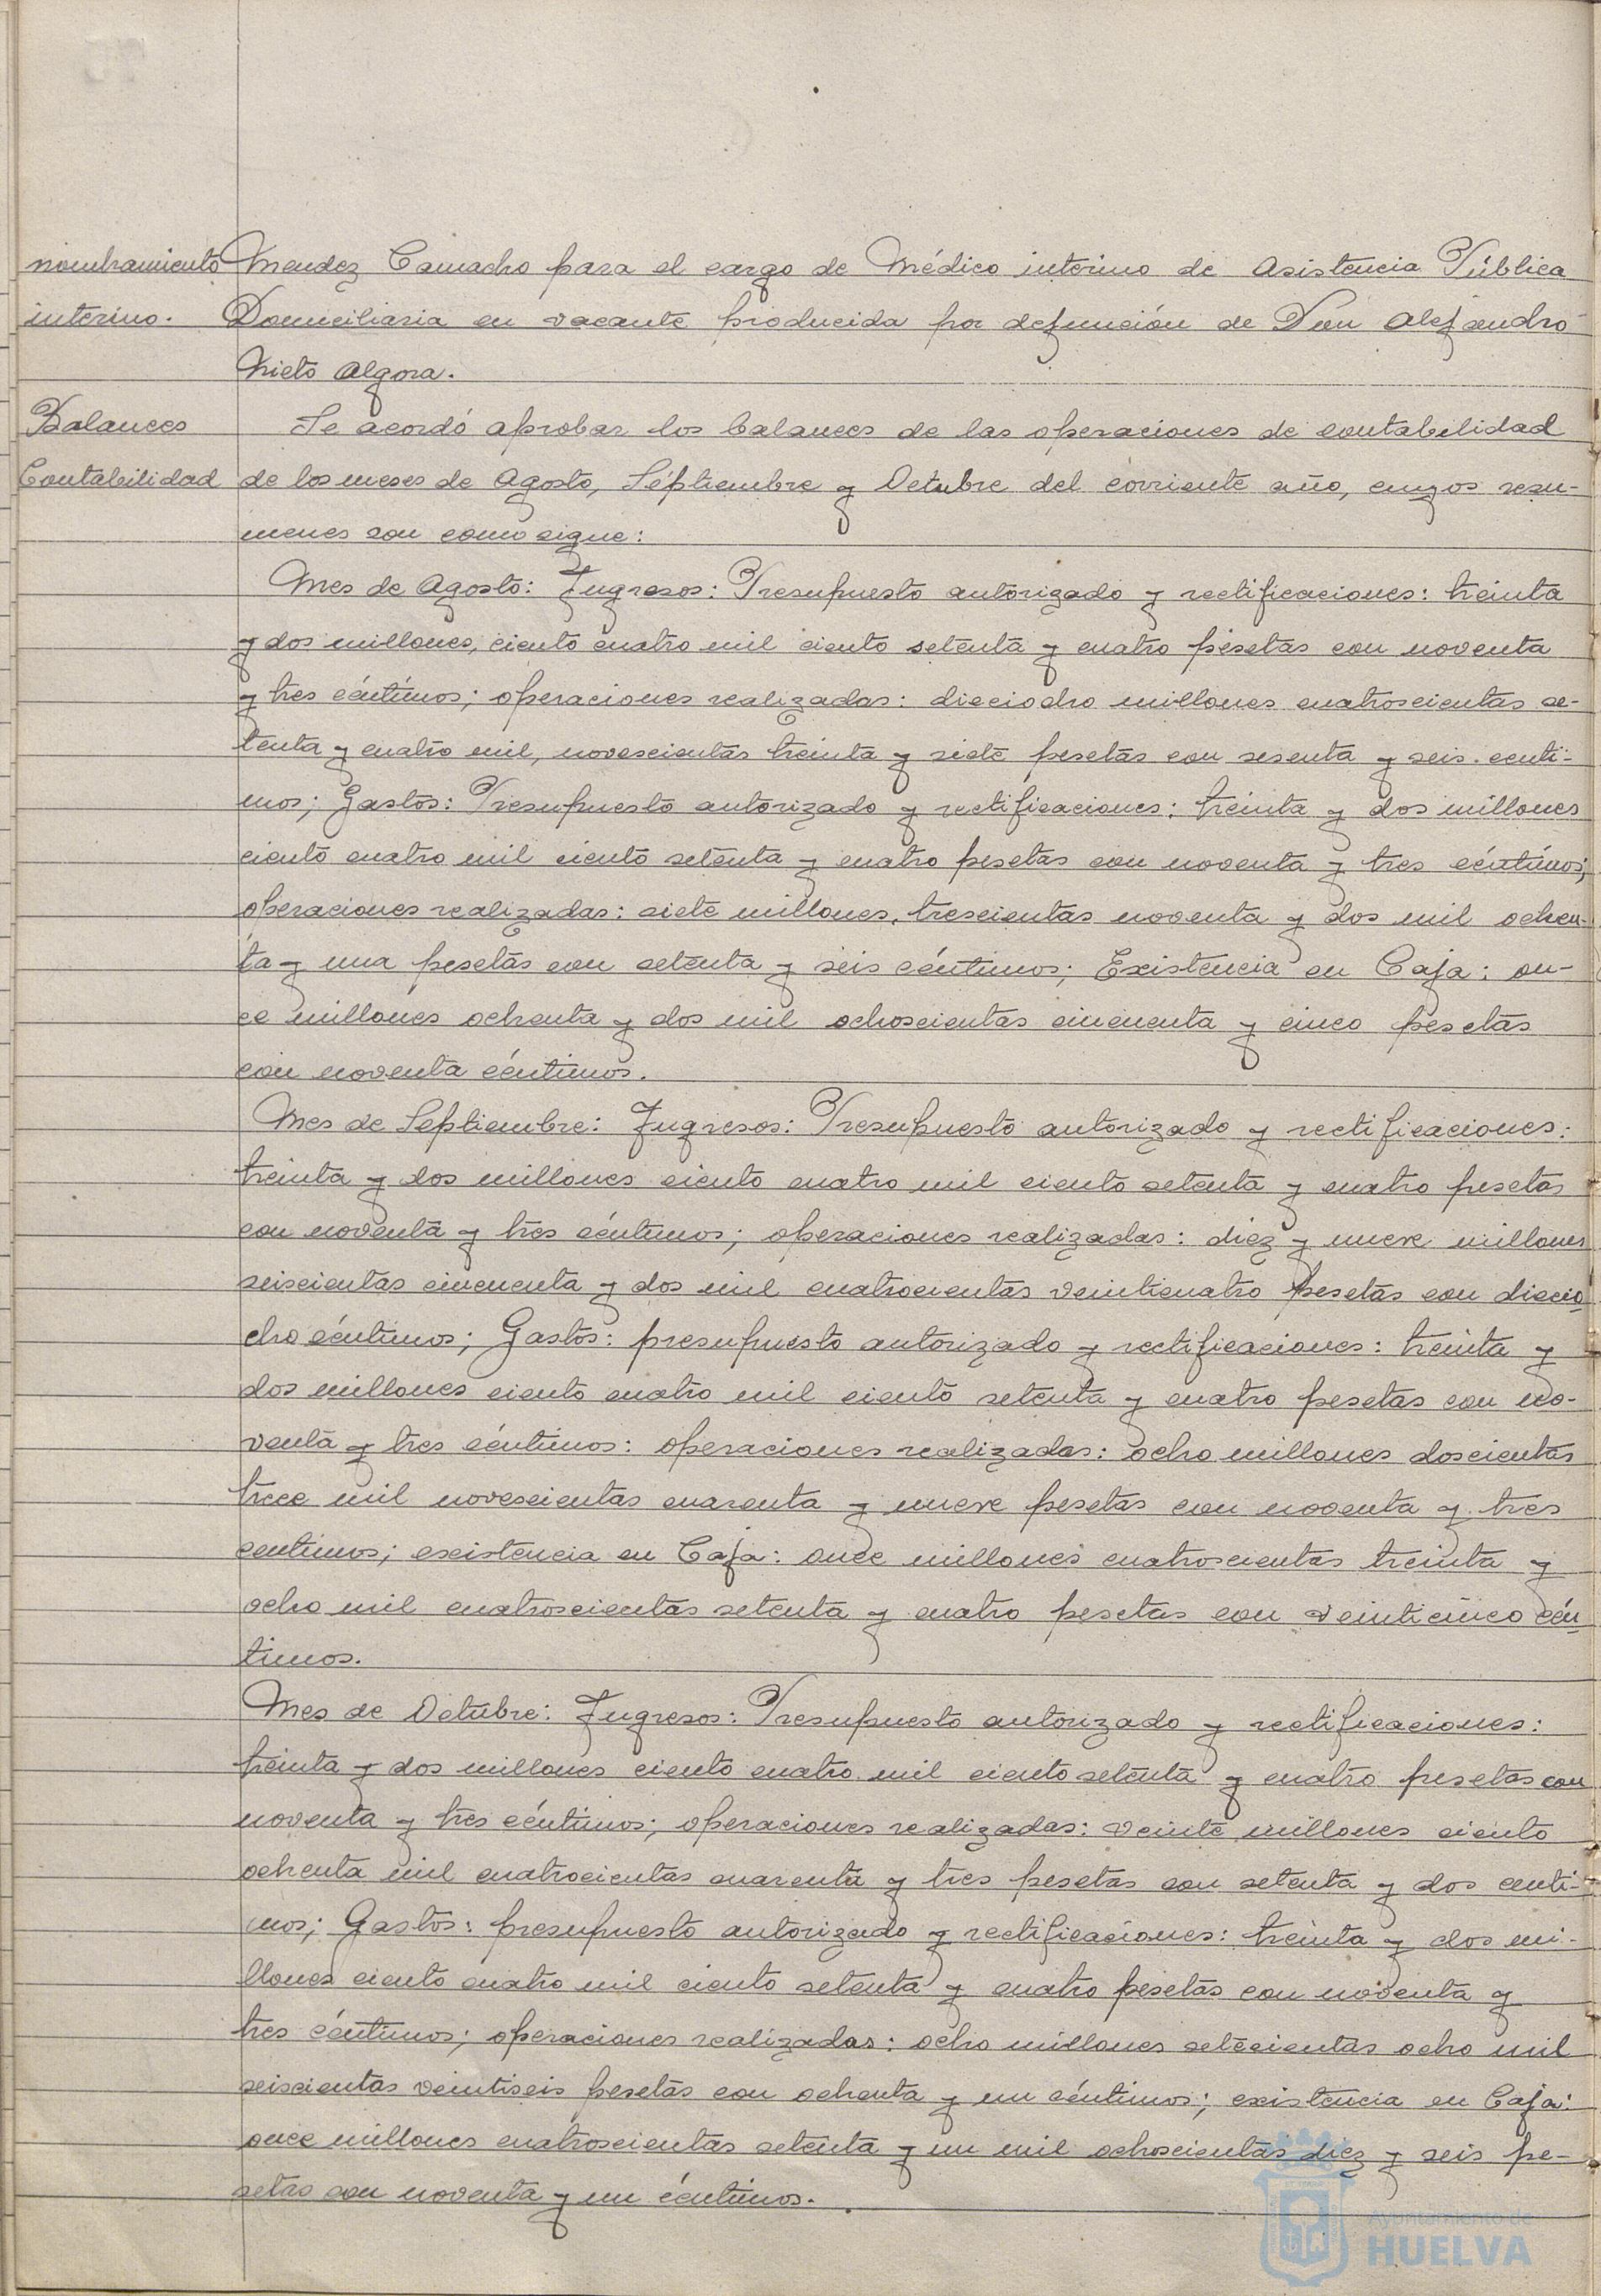 nombramiento Mendez Camacho para el cargo de Médico interino de Asistencia Pública
interino. Domiciliaria en vacante producida por defunción de Don Alejandro
Nieto Algora.
Balances Se acordó aprobar los balances de las operaciones de contabilidad
Contabilidad de los meses de Agosto, Séptiembre y Octubre del corriente año, cuyos resu-
menes son como sigue:
Mes de Agosto: Ingresos: Presupuesto autorizado y rectificaciones: treinta
y dos millones, ciento cuatro mil ciento setenta y cuatro pesetas con noventa
y tres céntimos; operaciones realizadas: dieciocho millones cuatroscientas se-
tenta y cuatro mil, novescientas treinta y siete pesetas con sesenta y seis centi-
mos; Gastos: Presupuesto autorizado y rectificaciones: treinta y dos millones
ciento cuatro mil ciento setenta y cuatro pesetas con noventa y tres céntimos;
operaciones realizadas: siete millones, trescientas noventa y dos mil ochen-
ta y una pesetas con setenta y seis céntimos; Existencia en Caja: on-
ce millones ochenta y dos mil ochoscientas cincuenta y cinco pesetas
con noventa céntimos.
Mes de Septiembre: Ingresos: Presupuesto autorizado y rectificaciones:
treinta y dos millones ciento cuatro mil ciento setenta y cuatro pesetas
con noventa y tres céntimos; operaciones realizadas: diez y nueve millones
seiscientas cincuenta y dos mil cuatrocientas veinticuatro pesetas con diecio
cho céntimos; Gastos: presupuesto autorizado y rectificaciones: treinta y
dos millones ciento cuatro mil ciento setenta y cuatro pesetas con no-
venta y tres céntimos: operaciones realizadas: ocho millones doscientas
trece mil novescientas cuarenta y nueve pesetas con noventa y tres
centimos; existencia en Caja: once millones cuatroscientas treinta y
ocho mil cuatroscientas setenta y cuatro pesetas con veinticinco cén
timos.
Mes de Octubre: Ingresos: Presupuesto autorizado y rectificaciones:
treinta y dos millones ciento cuatro mil ciento setenta y cuatro pesetas con
noventa y tres céntimos; operaciones realizadas: veinte millones ciento
ochenta mil cuatrocientas cuarenta y tres pesetas con setenta y dos centi-
mos; Gastos: presupuesto autorizado y rectificaciones: treinta y dos mi-
llones ciento cuatro mil ciento setenta y cuatro pesetas con noventa y
tres céntimos; operaciones realizadas: ocho millones setecientas ocho mil
seiscientas veintiseis pesetas con ochenta y un céntimos; existencia en Caja:
once millones cuatroscientas setenta y un mil ochoscientas diez y seis pe-
setas con noventa y un céntimos.
Ayuntamiento de
HUELVA